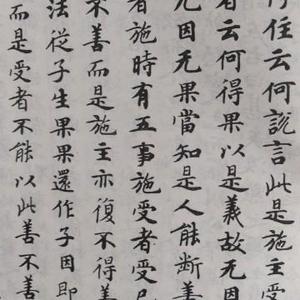 住云何說言此是施主受
者云何得果以是義故无因
无因无果當知是人能斷善
者施時有五事施受者受已
不善而是施主亦復不得善
法從子生果果還作子因即
而是受者不能以此善不善